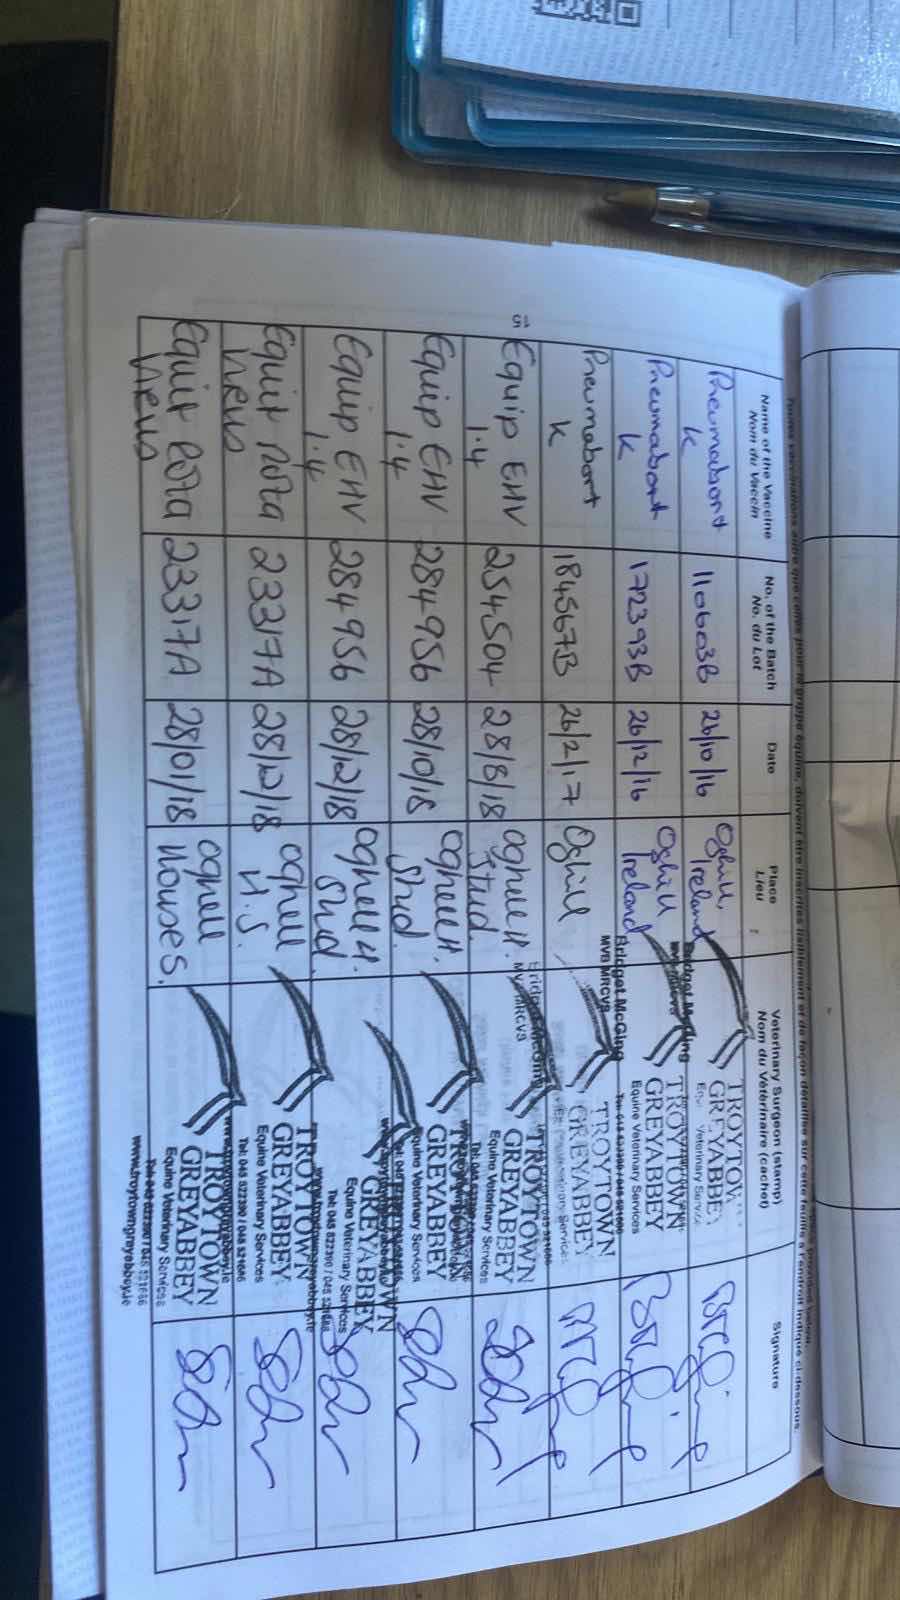 Toutes vaccinations autre que celles pour la grippe équine, doivent être inscrites lisiblement et de façon détaillée sur cette feuille à l'endroit indiqué ci-dessous.
Name of the Vaccine
Nom du Vaccin
No. of the Batch
No. du Lot
Date
Place
Lieu
Veterinary Surgeon (stamp)
Nom du Vétérinaire (cachet)
Signature
Pneumabort
K
110603B
26/10/16
Oghill,
Ireland
TROYTOW
GREYABBEY
Veterinary Service
Pneumabort
K
172393B
26/12/16
Oghill
Ireland
Bridget McGing
TROYTOWN
GREYABBEY
Equine Veterinary Services
Pneumabort
K
184567B
26/2/17
Oghill
Bridget McGing
MVB MRCVS
TROYTOWN
GREYABBEY
Equip EHV
1.4
254504
28/8/18
oghell H.
Stud.
TROYTOWN
GREYABBEY
Equine Veterinary Services
Equip EHV
1.4
284956
28/10/18
oghell H.
Stud.
TROYTOWN
GREYABBEY
Equine Veterinary Services
Equip EHV
1.4
284956
28/12/18
oghell H.
Stud.
GREYABBEY
Equine Veterinary Services
Tel: 045 522390 / 045 521686
Equit Rota
Virus
23317A
28/12/18
oghell
H.S.
TROYTOWN
GREYABBEY
Equine Veterinary Services
Tel: 045 522390 / 045 521686
Equit Rota
Virus
23317A
28/01/18
oghell
Houses.
TROYTOWN
GREYABBEY
Equine Veterinary Services
Tel: 045 522390 / 045 521686
www.troytowngreyabbey.ie
15